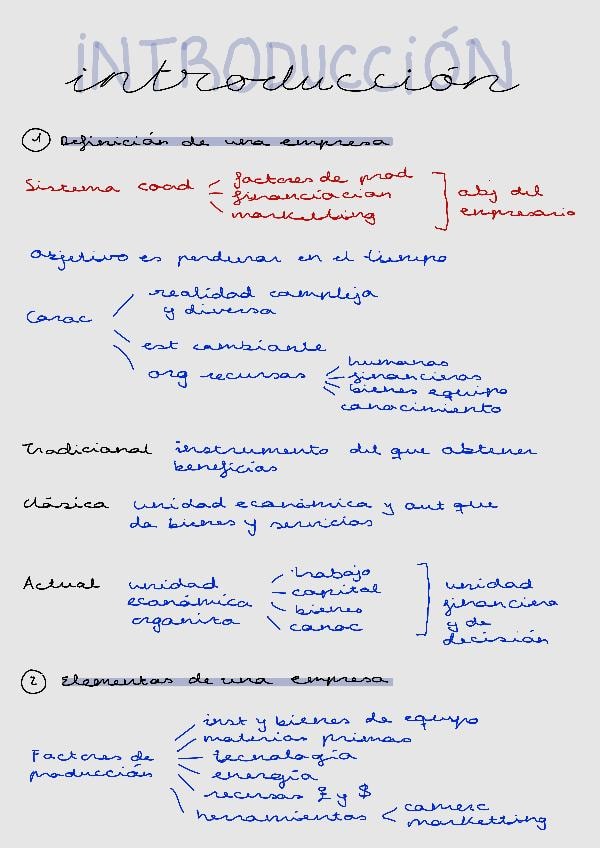 INTRODUCCIÓN
introducción
1 Definición de una empresa
Sistema coord
factores de prod
financiación
marketting
obj del
empresario
Objetivo es perdurar en el tiempo
Carac
realidad compleja
y diversa
est cambiante
org recursos
humanos
financieros
bienes equipo
conocimiento
Tradicional instrumento del que obtener
beneficios
Clásica unidad económica y aut que
da bienes y servicios
Actual unidad
económica
organiza
trabajo
capital
bienes
conoc
unidad
financiera
y de
decisión
2 Elementos de una empresa
Factores de
producción
inst y bienes de equipo
materias primas
tecnología
energía
recursos £ y $
herramientas
comerc
marketting